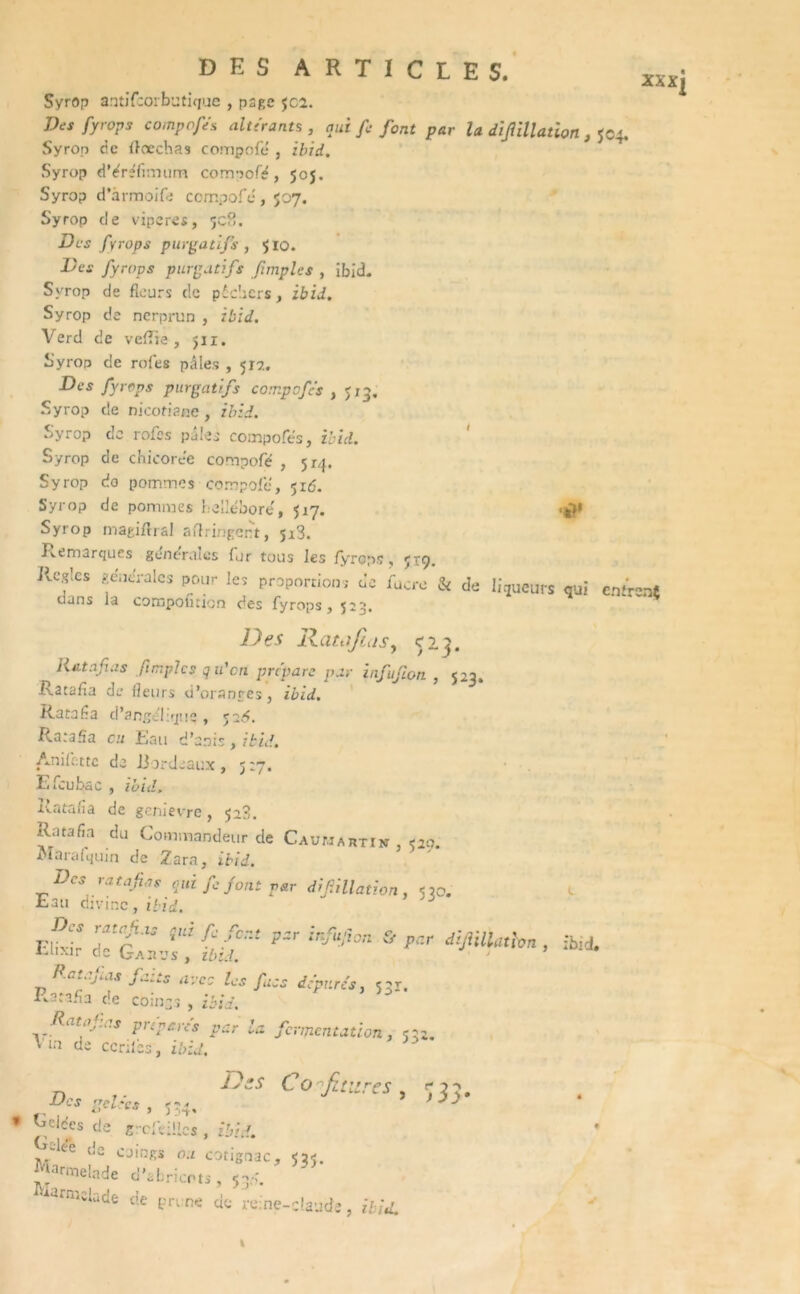 DES ARTICLES.
xxxj
Syrop antiſcorbutique , page 502.
Des ſyrops compoſés altérants , qui ſe font par la diſtillation , 504.
Syrop de ſtœchas compoſé , ibid.
Syrop d'éréſimum compoſé , 505.
Syrop d'armoiſe compoſé , 507.
Syrop de viperes , 508.
Des ſyrops purgatifs , 510.
Des ſyrops purgatifs ſimples , ibid.
Syrop de fleurs de pêchers , ibid.
Syrop de nerprun , ibid.
Verd de veſſie , 511.
Syrop de roſes pâles , 512.
Des ſyrops purgatifs compoſés , 513.
Syrop de nicotiane , ibid.
Syrop de roſes pâles compoſés, ibid.
Syrop de chicorée compoſé , 514.
Syrop de pommes compoſé, 516.
Syrop de pommes helléboré, 517.
Syrop magiſtral aſtringent, 518.
Remarques générales ſur tous les ſyrops , 519.
Regles générales pour les proportions de ſucre & de liqueurs qui entrent
dans la compoſition des ſyrops , 523.
Des Ratafias, 523.
Ratafias ſimples qu'on prépare par infuſion , 523.
Ratafia de fleurs d'oranges , ibid.
Ratafia d'angélique , 526.
Ratafia ou Eau d'anis , ibid.
Aniſette de Bordeaux , 527.
Eſcubac , ibid.
Ratafia de genievre , 528.
Ratafia du Commandeur de CAUMARTIN , 529.
Maraſquin de Zara, ibid.
Des ratafias qui ſe font par diſtillation , 530.
Eau divine , ibid.
Des ratafias qui ſe font par infuſion & par diſtillation , ibid.
Elixir de GARUS , ibid.
Ratafias faits avec les ſucs dépurés, 531.
Ratafia de coings , ibid.
Ratafias préparés par la fermentation , 532.
Vin de ceriſes, ibid.
Des Confitures , 533.
Des gelées , 534.
Gelées de groſeilles , ibid.
Gelée de coings ou cotignac, 535.
Marmelade d'abricots , 536.
Marmelade de prune de reine-claude , ibid.